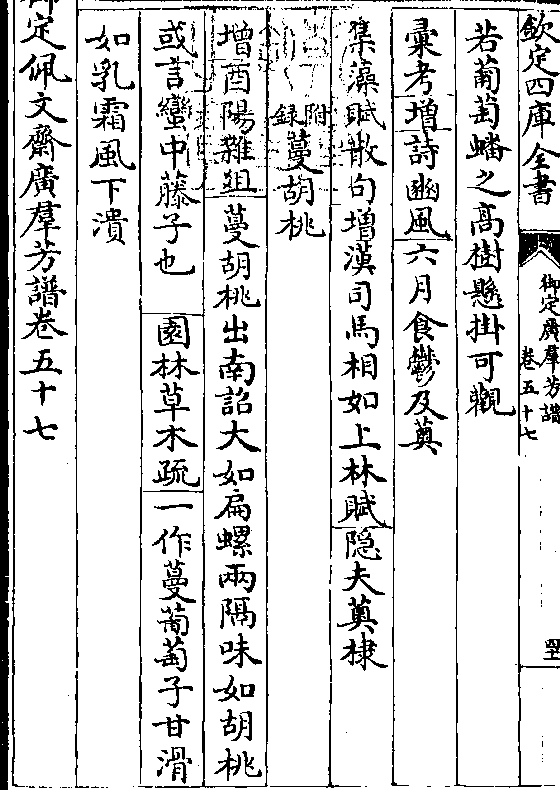 欽定四庫全書
御定廣羣芳譜
卷五十七
若葡萄蟠之高樹懸掛可觀
彙考增詩豳風六月食鬱及薁
集藻賦散句增漢司馬相如上林賦隠夫薁棣
附録蔓胡桃
增酉陽雜俎蔓胡桃出南詔大如扁螺兩隔味如胡桃
或言蠻中藤子也 園林草木疏一作蔓葡萄子甘滑
如乳霜風下潰
御定佩文齋廣羣芳譜卷五十七